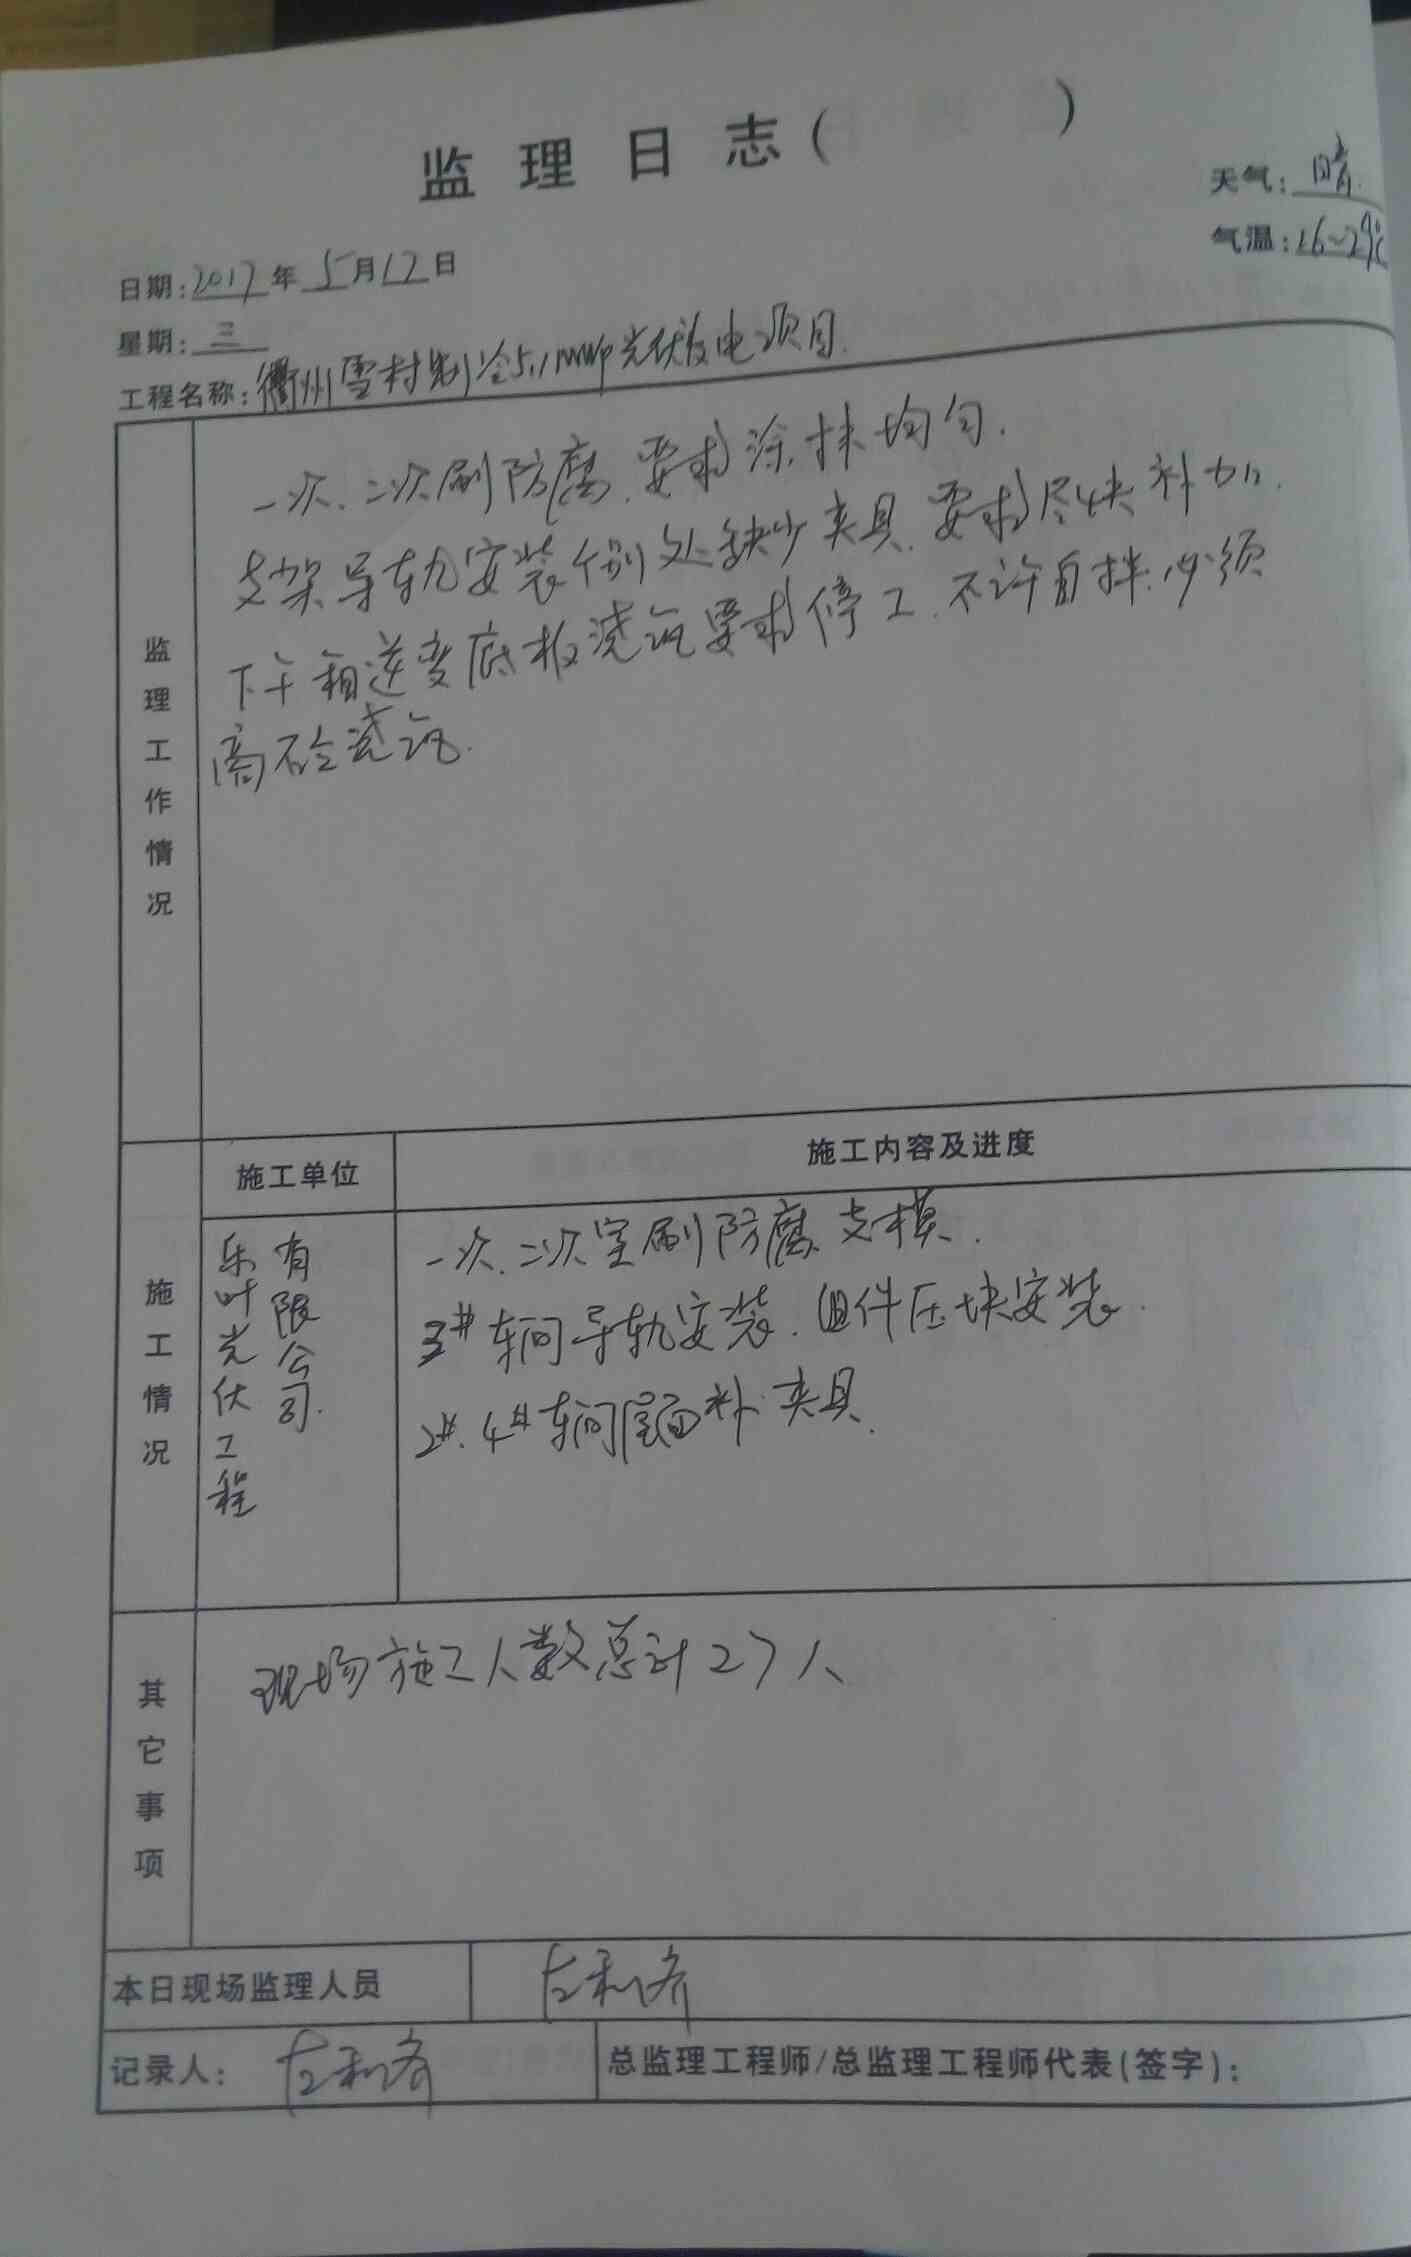 监理日志( )
天气: 晴.
气温: 16~29℃
日期: 2017年5月17日
星期: 三
工程名称: 衢州雪村制冷5.1MWp光伏发电项目.
监理工作情况
一次、二次刷防腐、要求涂抹均匀.
支架导轨安装个别处缺少夹具、要求尽快补加.
下午箱逆变底板浇筑要求停工、不许自拌、必须
商砼浇筑.
施工情况
施工单位
施工内容及进度
乐叶光伏工程
有限公司.
一次、二次室刷防腐、支模.
3#车间导轨安装、组件压块安装.
2#、4#车间屋面补夹具.
其它事项
现场施工人数总计27人
本日现场监理人员
左利济
记录人: 左利济
总监理工程师/总监理工程师代表(签字):